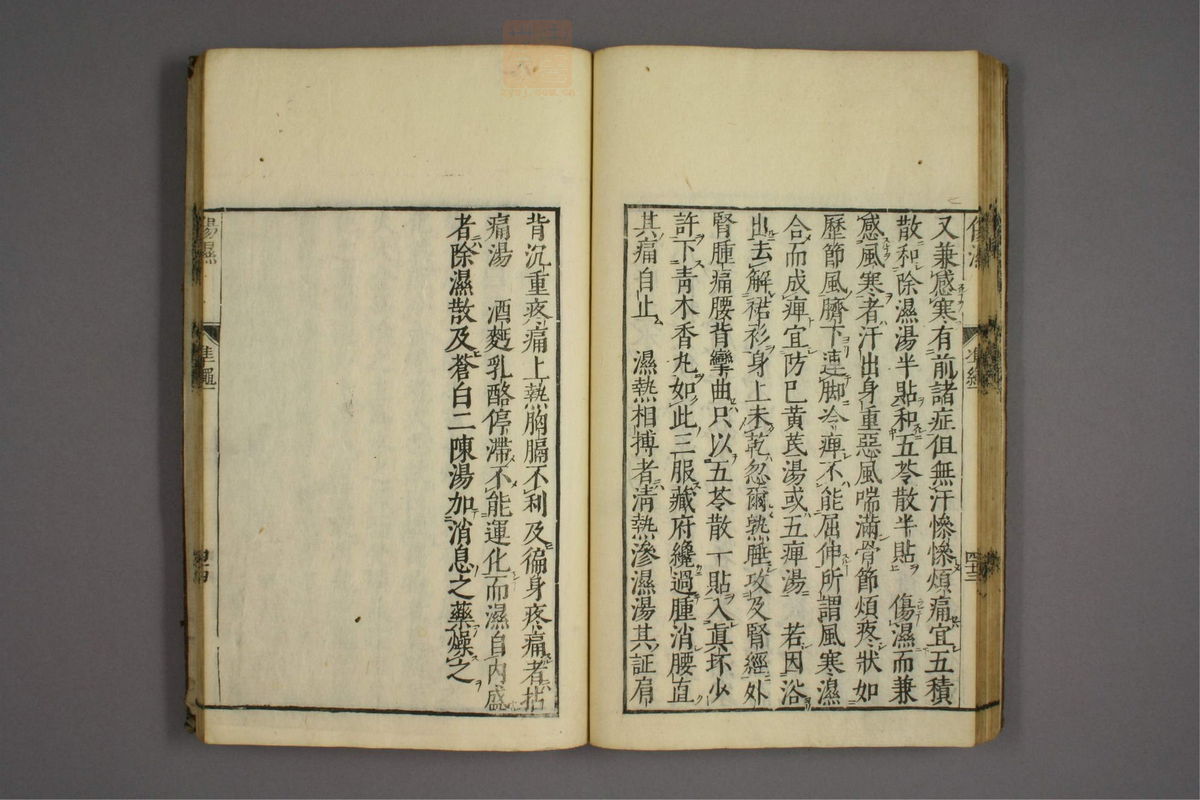 又兼感寒有前諸症但無汗慘慘煩痛宜五積
散和除濕湯半貼和五苓散半貼 傷濕而兼
感風寒者汗出身重惡風喘滿骨節煩疼狀如
歷節風臍下連脚冷痺不能屈伸所謂風寒濕
合而成痺宜防已黃芪湯或五痺湯 若因浴
出去解裙衫身上未乾忽爾熟睡攻及腎經外
腎腫痛腰背攣曲只以五苓散一貼入眞坏少
許下靑木香丸如此三服藏府纔過腫消腰直
其痛自止 濕熱相搏者淸熱滲濕湯其証肩
背沉重疼痛上熱胸膈不利及徧身疼痛者拈
痛湯 酒麪乳酪停滯不能運化而濕自內盛
者除濕散及蒼白二陳湯加消息之藥燥之
傷濕
準繩
四十四